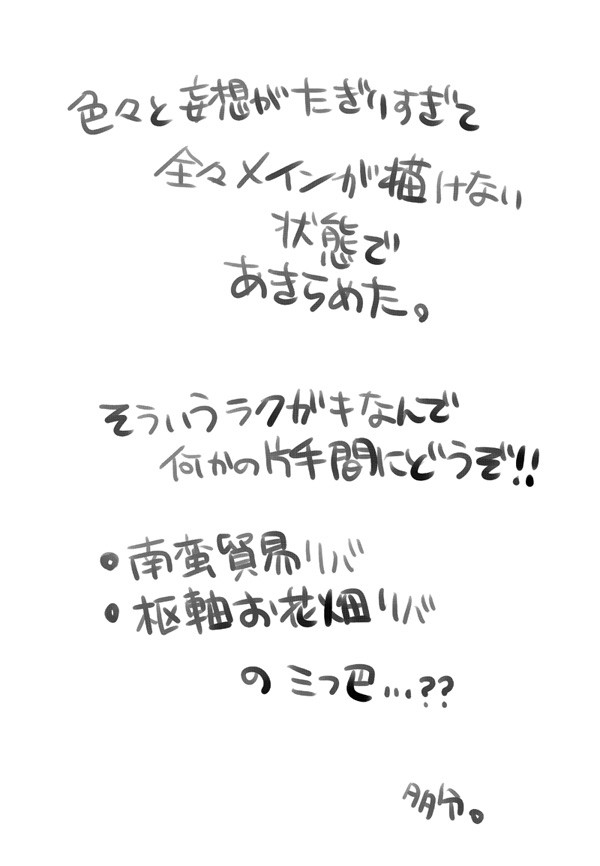 色々と妄想がたぎりすぎて
全々メインが描けない
状態で
あきらめた。
そういうラクガキなんで
何かの片手間にどうぞ!!
・南蛮貿易リバ
・枢軸お花畑リバ
の三つ巴…??
多分。